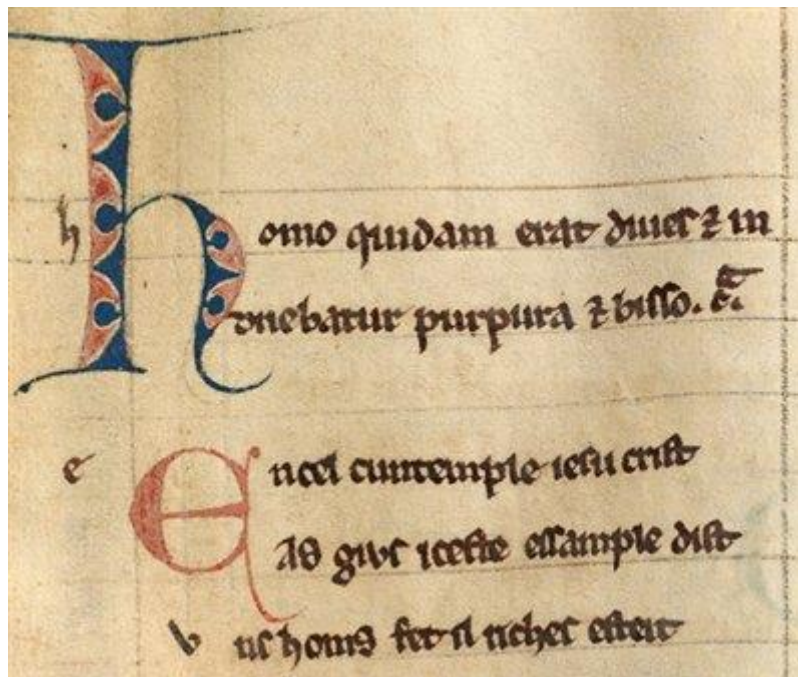 h homo quidam erat diues ⁊ in
duebatur purpura ⁊ bisso.
e Encel cuntemple iesu crist
AS givs iceste essample dist
vns homs fet il riches esteit